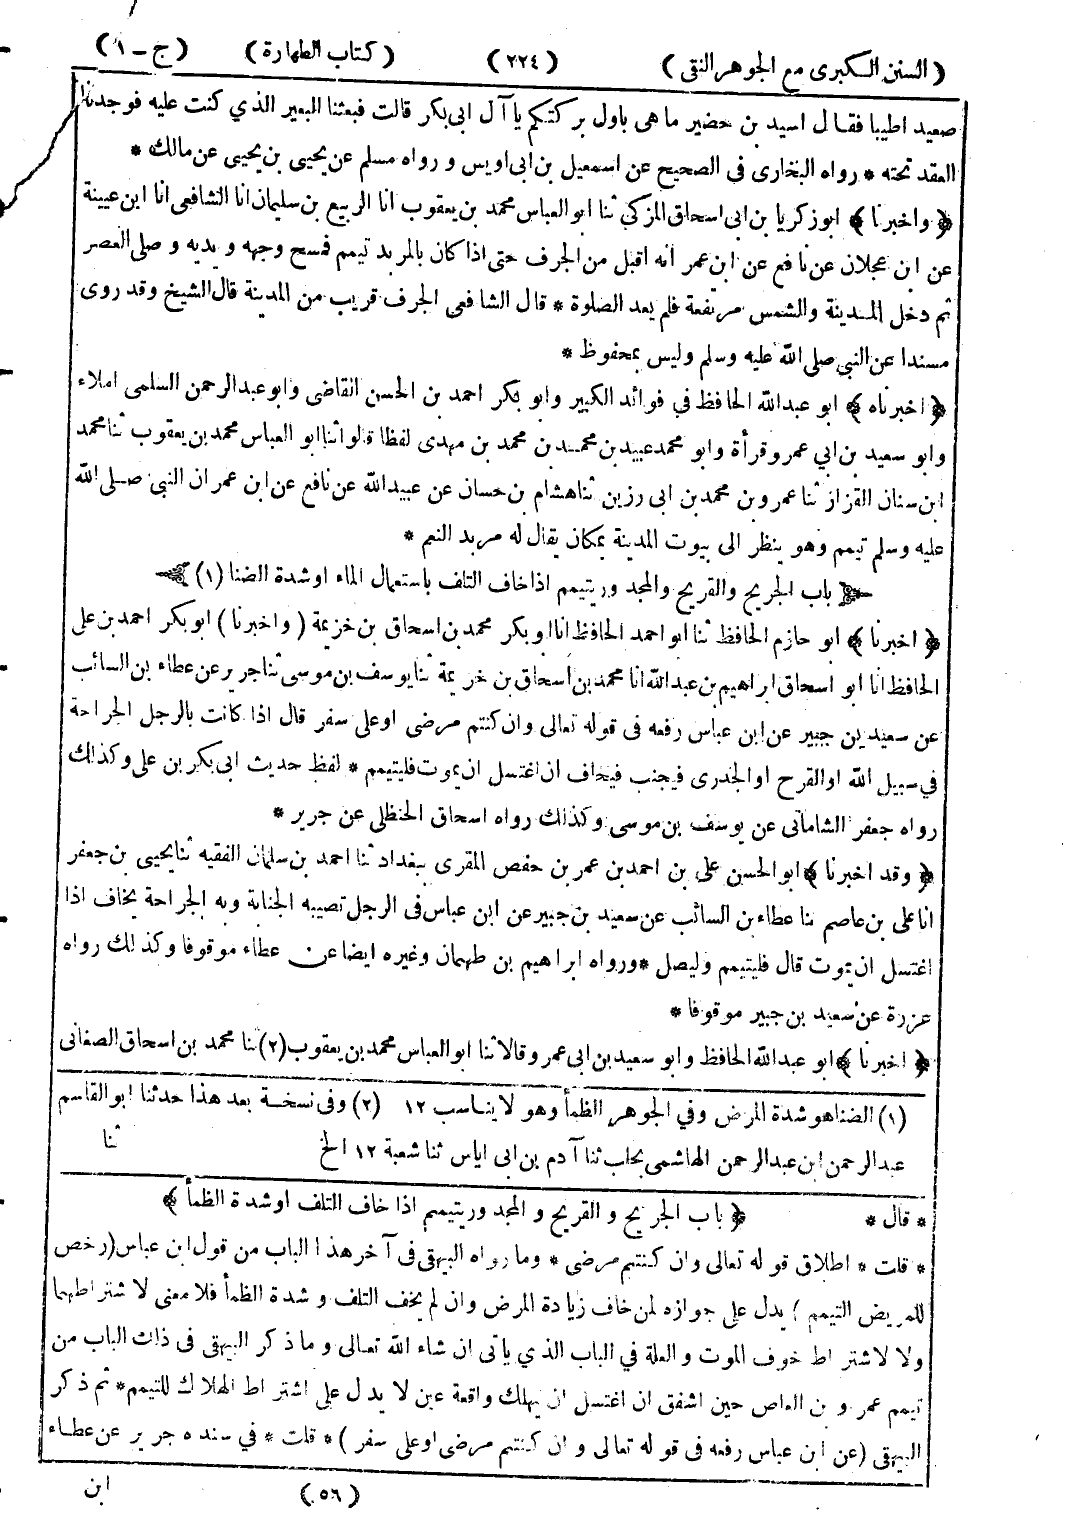 ( السنن الكبرى مع الجوهر النقى ) ( ٢٢٤ ) ( كتاب الطهارة ) ( ج - ١ )
صعيد اطيبا فقال اسيد بن حضير ما هى باول بركتكم يا آل ابى بكر قالت فبعثنا البعير الذي كنت عليه فوجدنا
العقد تحته * رواه البخارى فى الصحيح عن اسمعيل بن ابى اويس ورواه مسلم عن يحيى بن يحيى عن مالك *
﴿ واخبرنا ﴾ ابوزكريا بن ابى اسحاق المزكي ثنا ابو العباس محمد بن يعقوب انا الربيع بن سليمان انا الشافعى انا ابن عيينة
عن ابن عجلان عن نافع عن ابن عمر أنه اقبل من الجرف حتى اذا كان بالمربد تيمم فمسح وجهه ويديه وصلى العصر
ثم دخل المدينة والشمس مرتفعة فلم يعد الصلوة * قال الشافعى الجرف قريب من المدينة قال الشيخ وقد روى
مسندا عن النبي صلى الله عليه وسلم وليس بمحفوظ *
﴿ اخبرناه ﴾ ابو عبدالله الحافظ في فوائد الكبير وابو بكر احمد بن الحسن القاضى وابو عبدالرحمن السلمى املاء
وابو سعيد بن ابي عمرو قرأة وابو محمد عبيد بن محمد بن محمد بن مهدى لفظا قالوا ثنا ابو العباس محمد بن يعقوب ثنا محمد
ابن سنان القزاز ثنا عمرو بن محمد بن ابى رزين ثنا هشام بن حسان عن عبيدالله عن نافع عن ابن عمر ان النبي صلى الله
عليه وسلم تيمم وهو ينظر الى بيوت المدينة بمكان يقال له مربد النعم *
باب الجريح والقريح والمجدور يتيمم اذا خاف التلف باستعمال الماء او شدة الضنا (١)
﴿ اخبرنا ﴾ ابو حازم الحافظ ثنا ابو احمد الحافظ انا ابو بكر محمد بن اسحاق بن خزيمة ( واخبرنا ) ابو بكر احمد بن على
الحافظ انا ابو اسحاق ابراهيم بن عبدالله انا محمد بن اسحاق بن خزيمة ثنا يوسف بن موسى ثنا جرير عن عطاء بن السائب
عن سعيد بن جبير عن ابن عباس رفعه فى قوله تعالى وان كنتم مرضى او على سفر قال اذا كانت بالرجل الجراحة
في سبيل الله او القرح او الجدرى فيجنب فيخاف ان اغتسل ان يموت فليتيمم * لفظ حديث ابى بكر بن على وكذلك
رواه جعفر الشاماتى عن يوسف بن موسى وكذلك رواه اسحاق الحنظلى عن جرير *
﴿ وقد اخبرنا ﴾ ابو الحسن على بن احمد بن عمر بن حفص المقرى ببغداد ثنا احمد بن سلمان الفقيه ثنا يحيى بن جعفر
انا على بن عاصم ثنا عطاء بن السائب عن سعيد بن جبير عن ابن عباس فى الرجل تصيبه الجنابة وبه الجراحة يخاف اذا
اغتسل ان يموت قال فليتيمم وليصل * ورواه ابراهيم بن طهمان وغيره ايضا عن عطاء موقوفا وكذلك رواه
عزرة عن سعيد بن جبير موقوفا *
﴿ اخبرنا ﴾ ابو عبدالله الحافظ وابو سعيد بن ابى عمرو قالا ثنا ابو العباس محمد بن يعقوب (٢) ثنا محمد بن اسحاق الصغانى
(١) الضنا هو شدة المرض وفي الجوهر الظمأ وهو لا يناسب ١٢ (٢) وفى نسخة بعد هذا حدثنا ابو القاسم
عبدالرحمن ابن عبدالرحمن الهاشمى بحاب ثنا آدم بن ابى اياس ثنا شعبة ١٢ الخ
ثنا
* قال * ﴿ باب الجريح و القريح و المجدور يتيمم اذا خاف التلف او شدة الظمأ ﴾
* قلت * اطلاق قوله تعالى وان كنتم مرضى * وما رواه البيهقى فى آخر هذا الباب من قول ابن عباس (رخص
للمريض التيمم ) يدل على جوازه لمن خاف زيادة المرض وان لم يخف التلف و شدة الظمأ فلا معنى لاشتراطهما
ولا لاشتراط خوف الموت و العلة في الباب الذي يأتى ان شاء الله تعالى و ما ذكر البيهقى فى ذاك الباب من
تيمم عمرو بن العاص حين اشفق ان اغتسل ان يهلك واقعة عين لا يدل على اشتراط الهلاك للتيمم * ثم ذكر
البيهقى (عن ابن عباس رفعه فى قوله تعالى و ان كنتم مرضى او على سفر ) * قلت * في سنده جرير عن عطاء
( ٥٦ ) ابن